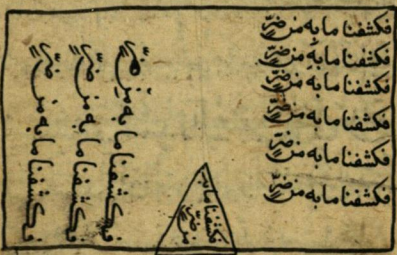 فكشفنا ما به من ضرٍّ
فكشفنا ما به من ضرٍّ
فكشفنا ما به من ضرٍّ
فكشفنا ما به من ضرٍّ
فكشفنا ما به من ضرٍّ
فكشفنا ما به من ضرٍّ
فكشفنا ما به من ضرٍّ
فكشفنا ما به من ضرٍّ
فكشفنا ما به من ضرٍّ
فكشفنا ما به
من ضرٍّ